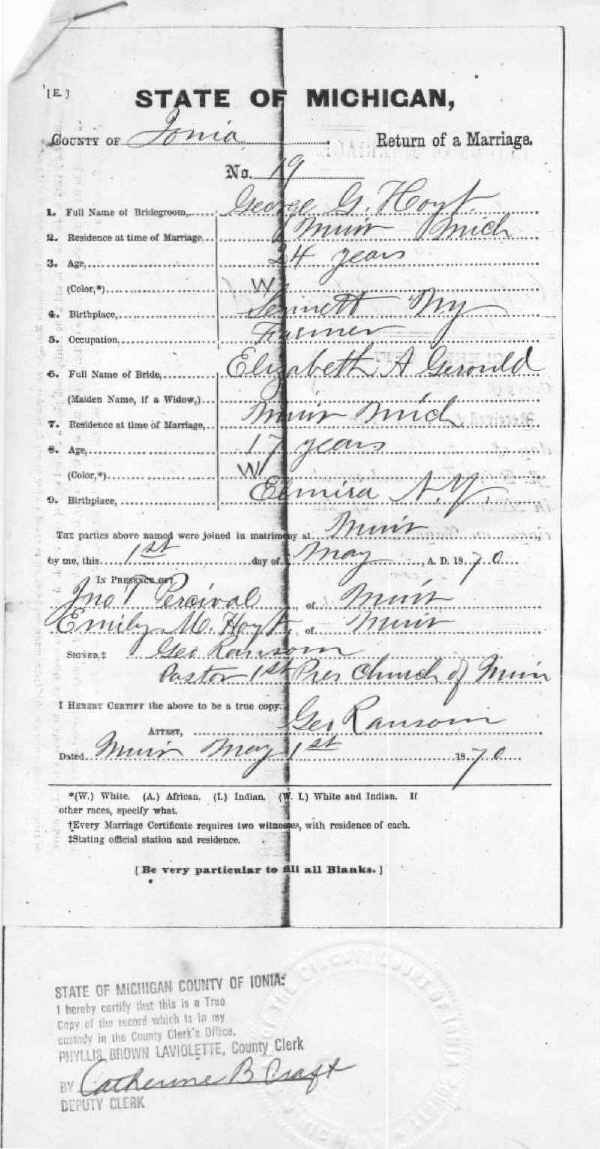 [E.]
STATE OF MICHIGAN,
COUNTY OF Ionia Return of a Marriage.
No. 19
1. Full Name of Bridegroom, George G. Hoyt.
2. Residence at time of Marriage, Muir Mich
3. Age, 24 years
(Color,*) W
4. Birthplace, Sennett Ny
5. Occupation, Farmer
6. Full Name of Bride, Elizabeth A Gerould
(Maiden Name, if a Widow,)
7. Residence at time of Marriage, Muir Mich
8. Age, 17 years
(Color,*) W
9. Birthplace, Elmira N.Y.
THE parties above named were joined in matrimony at Muir
by me, this 1st day of May, A. D. 1870
IN PRESENCE OF†
Jno T Percival of Muir
Emily M. Hoyt, of Muir
SIGNED,‡ Geo Ransom
Pastor 1st Pres Church of Muir
I HEREBY CERTIFY the above to be a true copy.
ATTEST, Geo Ransom
Dated Muir May 1st 1870
*(W.) White. (A.) African. (I.) Indian. (W. I.) White and Indian. If
other races, specify what.
†Every Marriage Certificate requires two witnesses, with residence of each.
‡Stating official station and residence.
[Be very particular to fill all Blanks.]
STATE OF MICHIGAN COUNTY OF IONIA:
I hereby certify that this is a True
Copy of the record which is in my
custody in the County Clerk's Office.
PHYLLIS BROWN LAVIOLETTE, County Clerk
BY Catherine B Craft
DEPUTY CLERK